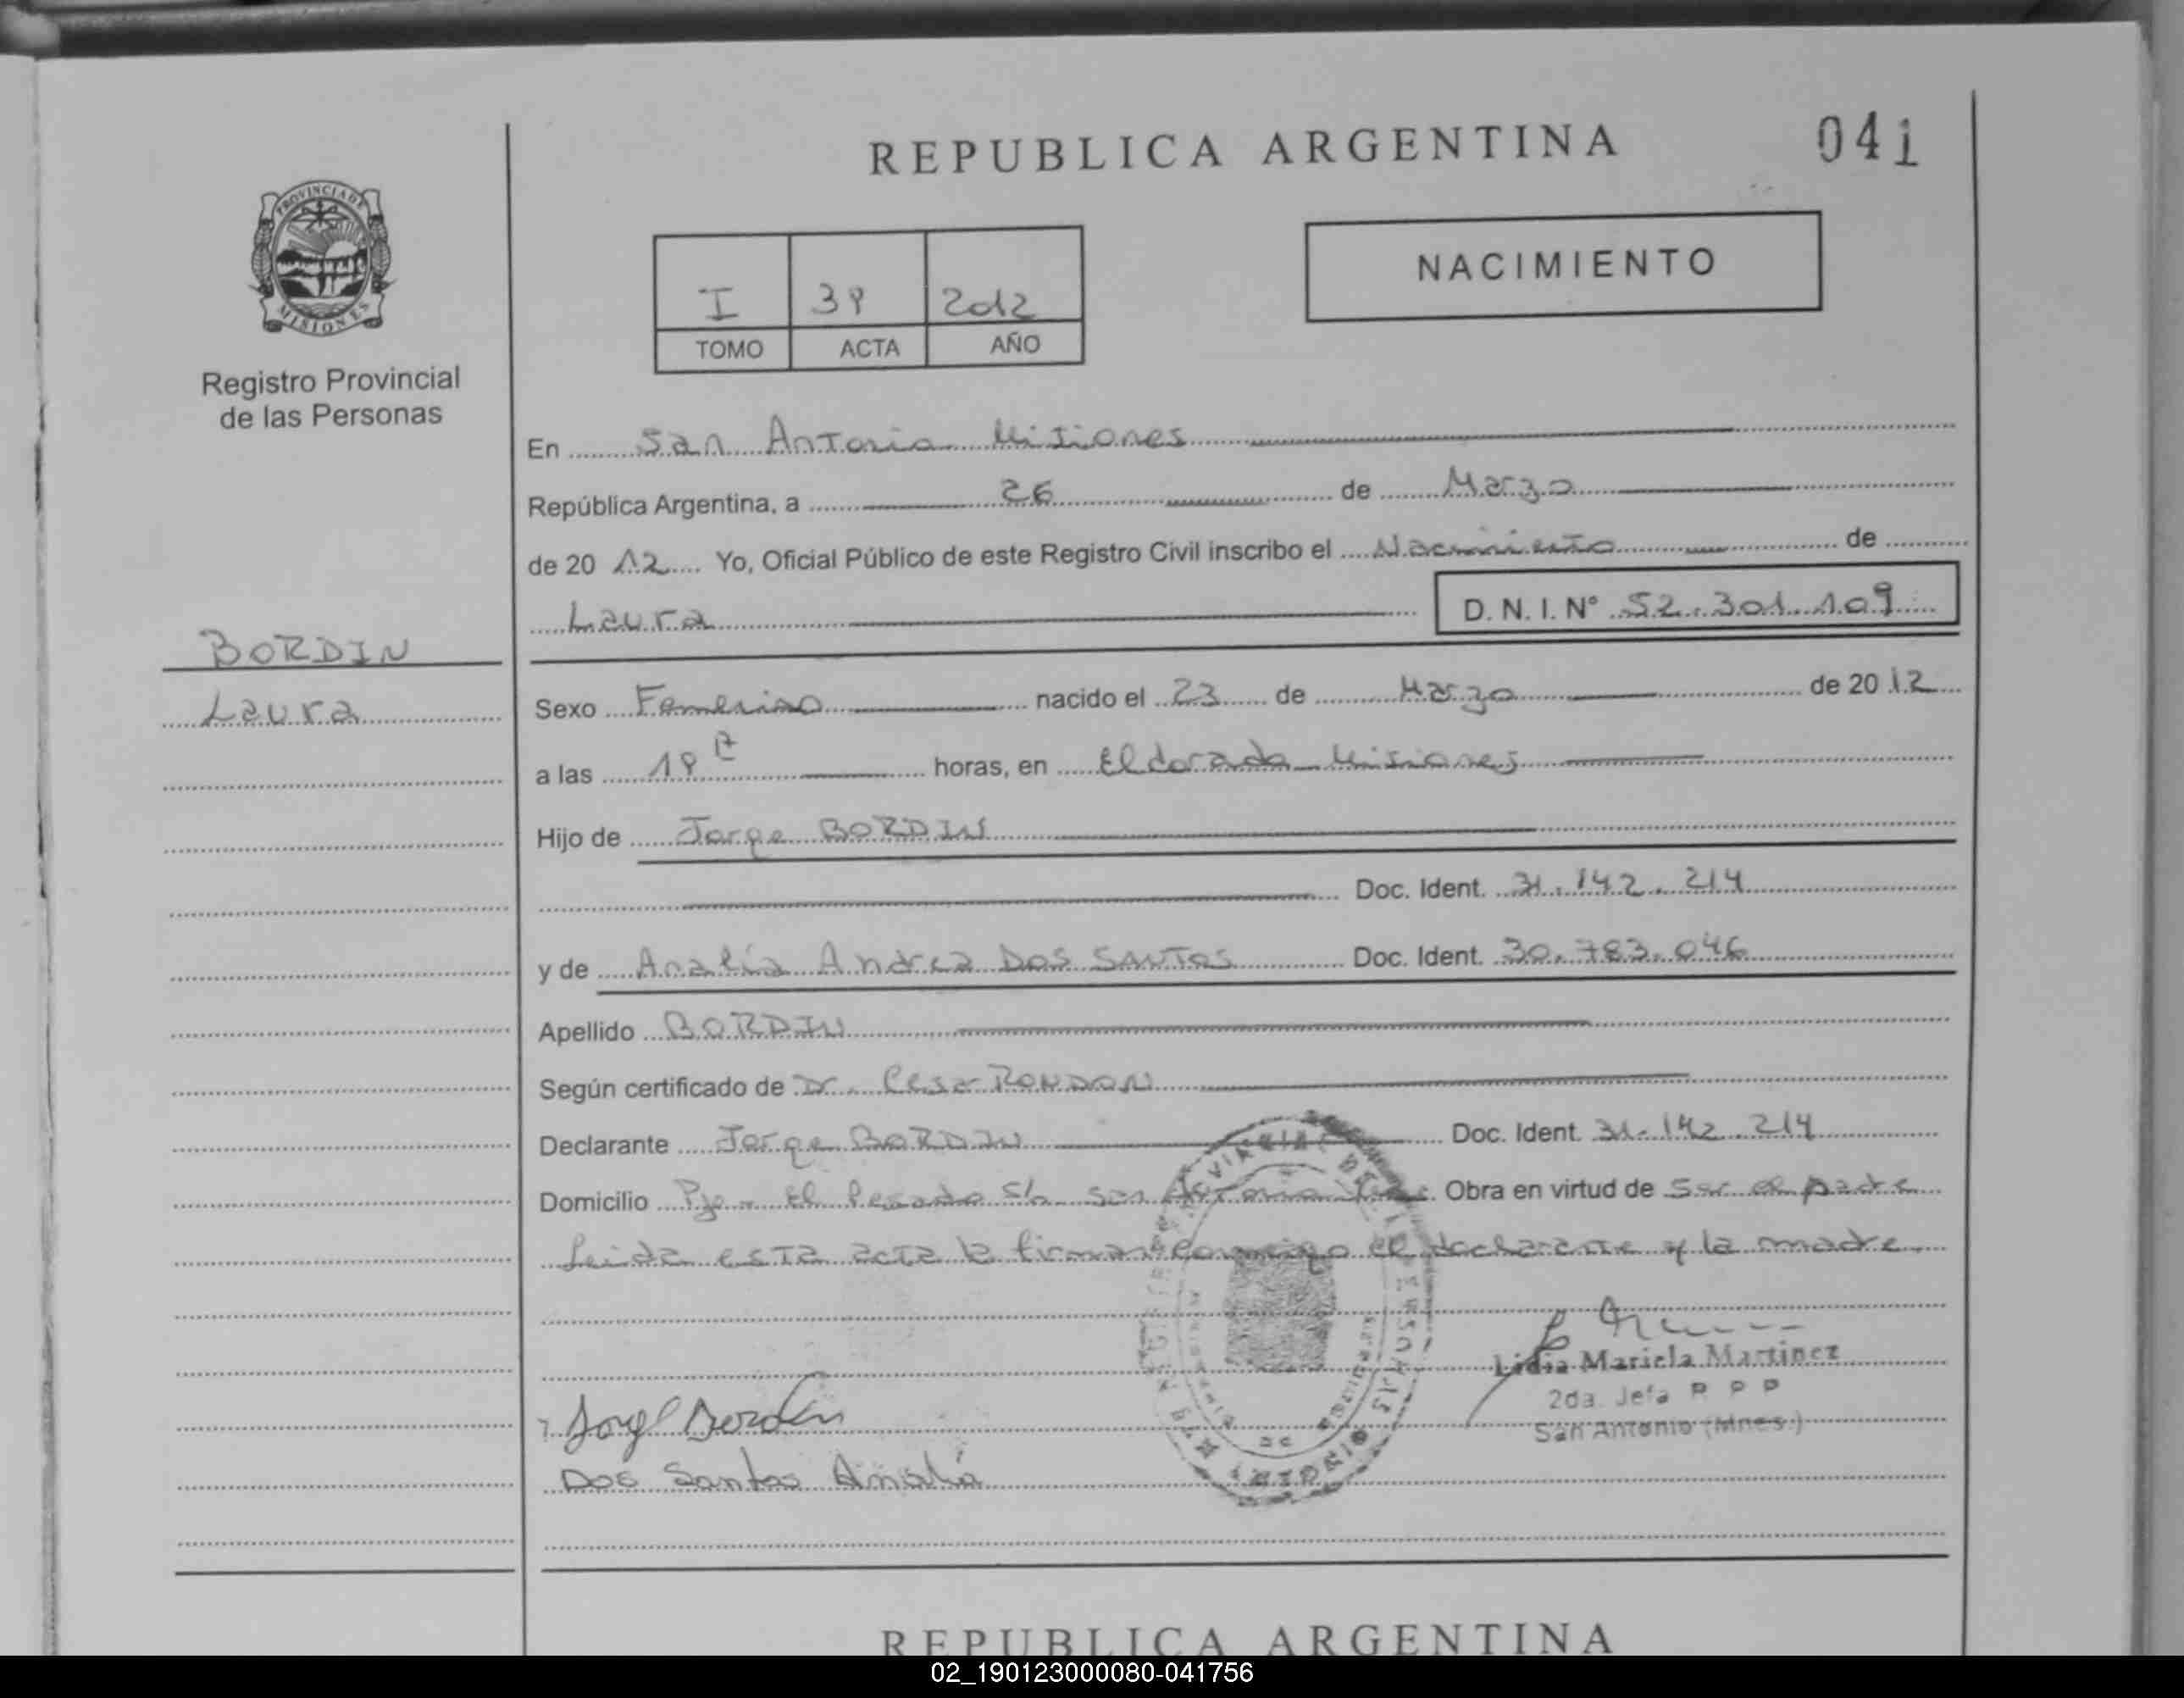 REPUBLICA ARGENTINA
041
PROVINCIA DE
MISIONES
Registro Provincial
de las Personas
I 39 2012
TOMO ACTA AÑO
NACIMIENTO
En San Antonio Misiones
República Argentina, a 26 de Marzo
de 20 12 Yo, Oficial Público de este Registro Civil inscribo el Nacimiento de
Laura D. N. I. Nº 52.301.109
BORDIN
Laura
Sexo Femenino nacido el 23 de Marzo de 20 12
a las horas, en Eldorado Misiones
Hijo de Jorge BORDIN
Doc. Ident. 31.142.214
y de Analía Andrea DOS SANTOS Doc. Ident. 30.783.046
Apellido BORDIN
Según certificado de Dr. Cesar RONDON
Declarante Jorge BORDIN Doc. Ident. 31.142.214
Domicilio Pje. El Pesado S/n San Antonio Obra en virtud de ser el padre
Leida esta acta la firman conmigo el declarante y la madre.
Lidia Mariela Martinez
2da. Jefa R P P
San Antonio (Mnes.)
Jorge Bordin
Dos Santos Analía
REPUBLICA ARGENTINA
02_190123000080-041756